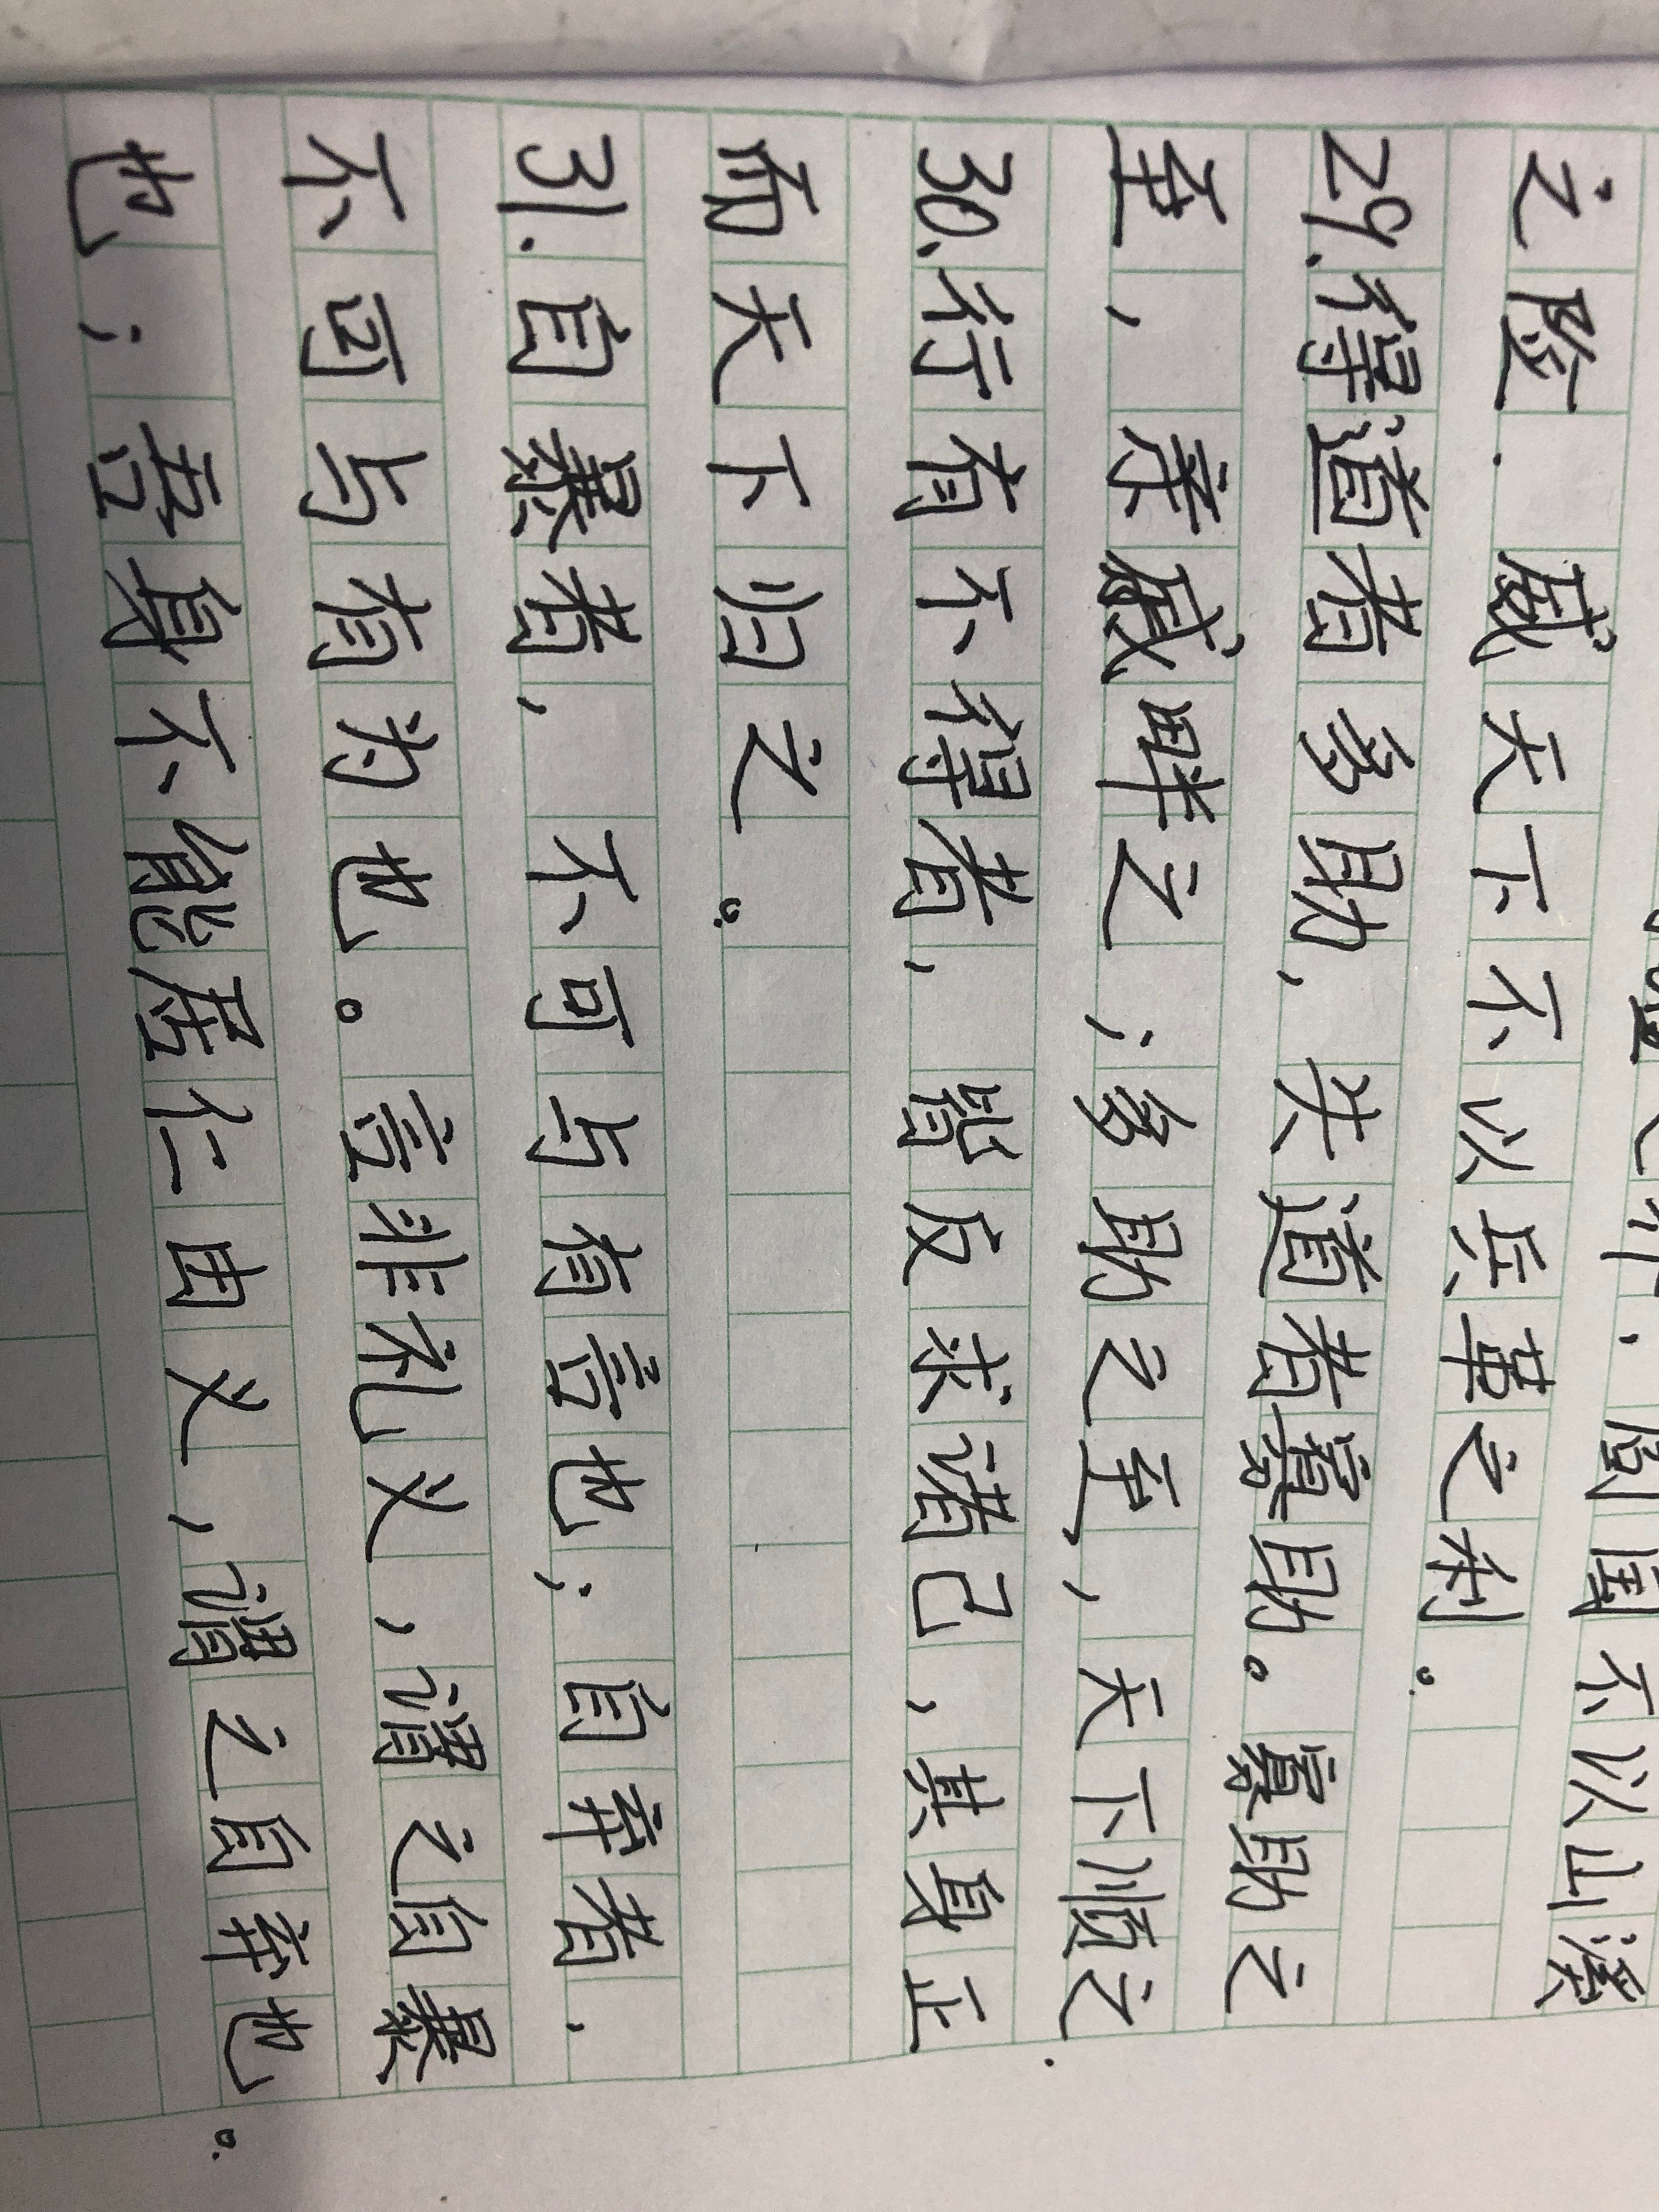 ，固国不以山溪
之险.威天下不以兵革之利。
29.得道者多助，失道者寡助。寡助之
至，亲戚畔之；多助之至，天下顺之.
30.行有不得者，皆反求诸己，其身正
而天下归之。
31.自暴者，不可与有言也；自弃者，
不可与有为也。言非礼义，谓之自暴
也；吾身不能居仁由义，谓之自弃也。